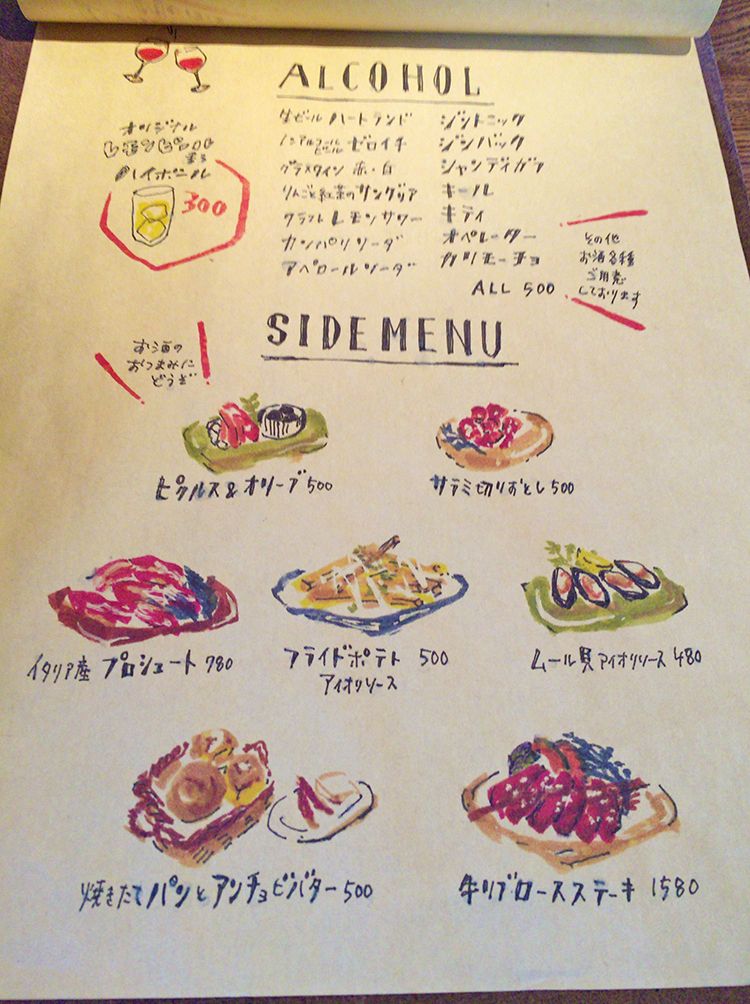 ALCOHOL
オリジナル
ハイボール
300
生ビール ハートランド
ノンアルコールビール ゼロイチ
グラスワイン 赤・白
りんごと紅茶のサングリア
クラフトレモンサワー
カンパリソーダ
アペロールソーダ
ジントニック
ジンバック
シャンディガフ
キール
キティ
オペレーター
カリモーチョ
ALL 500
その他
お酒各種
ご用意
しております
SIDE MENU
お酒の
おつまみに
どうぞ
ピクルス&オリーブ 500
サラミ切りおとし 500
イタリア産 プロシュート 780
フライドポテト 500
アイオリソース
ムール貝アイオリソース 480
焼きたてパンとアンチョビバター 500
牛リブロースステーキ 1580